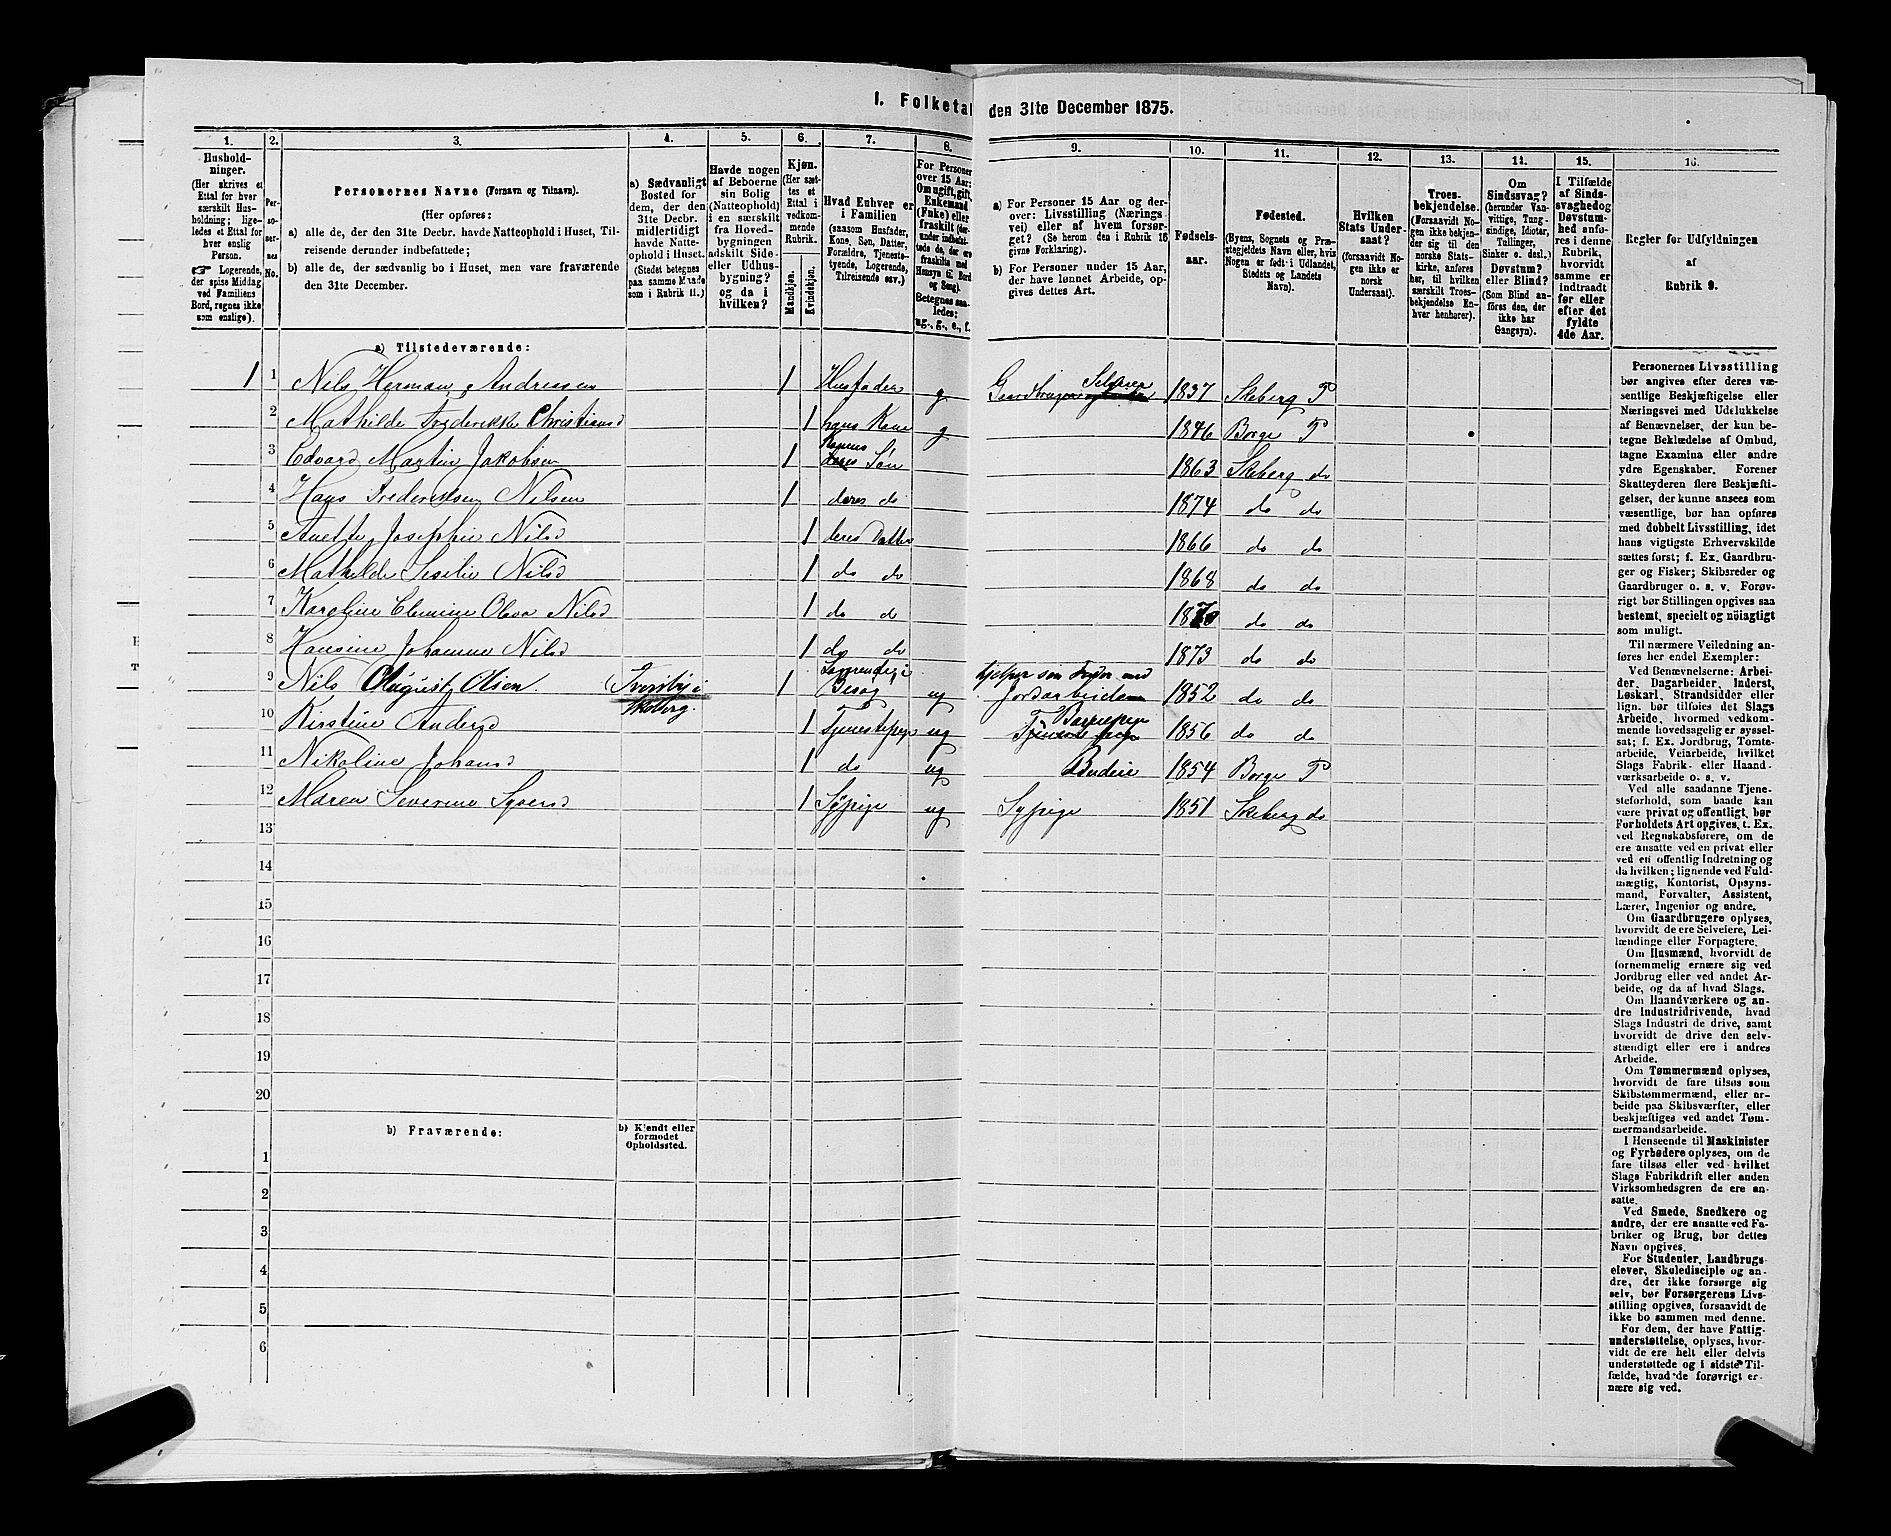 I. Folketal
den 31te December 1875.
1. 2. 3. 4. 5. 6. 7. 8. 9. 10. 11. 12. 13. 14. 15. 16.
Husholdninger.
(Her skrives et
Ettal for hver
særskilt Husholdning;
ligeledes et Ettal for
hver enslig
Person.
☞ Logerende,
der spise Middag
ved Familiens
Bord, regnes ikke
som enslige).
Personernes No.
Personernes Navne (Fornavn og Tilnavn).
(Her opføres:
a) alle de, der den 31te Decbr. havde Natteophold i Huset, Tilreisende
derunder indbefattede;
b) alle de, der sædvanlig bo i Huset, men vare fraværende
den 31te December.
a) Sædvanligt
Bosted for
dem, der den
31te Decbr.
midlertidigt
havde Natteophold
i Huset.
(Stedet betegnes
paa samme Maade
som i Rubrik 11.)
Havde nogen
af Beboerne
sin Bolig
(Natteophold)
i en særskilt
fra Hovedbygningen
adskilt Side-
eller Udhusbygning?
og da i
hvilken?
Kjøn.
(Her sættes
et
Ettal i
vedkommende
Rubrik.
Mandkjøn.
Kvindekjøn.
Hvad Enhver er
i Familien
(saasom Husfader,
Kone, Søn, Datter,
Forældre, Tjenestetyende,
Logerende,
Tilreisende osv.)
For Personer
over 15 Aar:
Om ugift, gift,
Enkemand
(Enke) eller
fraskilt (derunder
indbefattede
de, der ere
fraskilte med
Hensyn til Bord
og Seng).
Betegnes saaledes:
ug., g., e., f.
a) For Personer 15 Aar og derover:
Livsstilling (Næringsvei)
eller af hvem forsørget?
(Se herom den i Rubrik 16
givne Forklaring).
b) For Personer under 15 Aar,
der have lønnet Arbeide, opgives
dettes Art.
Fødselsaar.
Fødested.
(Byens, Sognets og Præstegjeldets
Navn eller, hvis
Nogen er født i Udlandet,
Stedets og Landets
Navn).
Hvilken
Stats Undersaat?
(forsaavidt Nogen
ikke er
norsk
Undersaat).
Troesbekjendelse.
(Forsaavidt Nogen
ikke bekjender
sig til den
norske Statskirke,
anføres
her, til hvilken
særskilt Troesbekjendelse
Enhver
henhører).
Om
Sindssvag?
(herunder Vanvittige,
Tungsindige,
Idioter,
Tullinger,
Sinker o. desl.)
Døvstum?
eller Blind?
(Som Blind anføres
den, der
ikke har
Gangsyn).
I Tilfælde
af Sindssvaghed
og
Døvstumhed
anføres
i denne
Rubrik,
hvorvidt
samme er
indtraadt
før eller
efter det
fyldte
4de Aar.
Regler for Udfyldningen
af
Rubrik 9.
a) Tilstedeværende:
1 1 Nils Herman Andreasen 1 Husfader g Gaardbruger Selveier 1837 Skeberg P
2 Mathilde Frederikke Christiansd 1 hans Kone g 1846 Borge P
3 Edvard Martin Jakobsen 1 Konens Søn 1863 Skeberg do
4 Hans Frederiksen Nilsen 1 deres do 1874 do do
5 Anette Josephie Nilsd 1 deres Datter 1866 do do
6 Mathilde Sesilie Nilsd 1 do do 1868 do do
7 Karoline Elemine Olava Nilsd 1 do d 1870 do do
8 Hansine Johanne Nilsd 1 do do 1873 do do
9 Nils August Olsen. i Skeberg. 1 Besøg ug hjelper sin Fader med Jordarbeide 1852 do do
10 Kirstine Andersd 1 Tjenestepige ug 1856 do do
11 Nikoline Johansd 1 do ug Budeie 1854 Borge P
12 Maren Severine Syversd 1 Sypige ug Sypige 1851 Skeberg do
13
14
15
16
17
18
19
20
b) Fraværende:
b) Kjendt eller
formodet
Opholdssted.
1
2
3
4
5
6
Personernes Livsstilling
bør angives efter deres væsentlige
Beskjæftigelse eller
Næringsvei med Udelukkelse
af Benævnelser, der kun betegne
Beklædelse af Ombud,
tagne Examina eller andre
ydre Egenskaber. Forener
Skatteyderen flere Beskjæftigelser,
der kunne ansees som
væsentlige, bør han opføres
med dobbelt Livsstilling, idet
hans vigtigste Erhvervskilde
sættes først; f. Ex. Gaardbruger
og Fisker; Skibsreder og
Gaardbruger o. s. v. Forøvrigt
bør Stillingen opgives saa
bestemt, specielt og nöiagtigt
som muligt.
Til nærmere Veiledning anføres
her endel Exempler:
Ved Benævnelserne: Arbeider,
Dagarbeider, Inderst,
Løskarl, Strandsidder eller
lign. bør tilføies det Slags
Arbeide, hvormed vedkommende
hovedsagelig er sysselsat;
f. Ex. Jordbrug, Tomtearbeide,
Veiarbeide, hvilket
Slags Fabrik- eller Haandværksarbeide
o. s. v.
Ved alle saadanne Tjenesteforhold,
som baade kan
være privat og offentligt, bør
Forholdets Art opgives, t. Ex.
ved Regnskabsførere, om de
ere ansatte ved en privat eller
ved en offentlig Indretning og
da hvilken; lignende ved Fuldmægtig,
Kontorist, Opsynsmand,
Forvalter, Assistent,
Lærer, Ingeniør og andre.
Om Gaardbrugere oplyses,
hvorvidt de ere Selveiere, Leilændinge
eller Forpagtere.
Om Husmænd, hvorvidt de
fornemmelig ernære sig ved
Jordbrug eller ved andet Arbeide,
og da af hvad Slags.
Om Haandværkere og andre
Industridrivende, hvad
Slags Industri de drive, samt
hvorvidt de drive den selvstændigt
eller ere i andres
Arbeide.
Om Tømmermænd oplyses,
hvorvidt de fare tilsøs som
Skibstømmermænd, eller arbeide
paa Skibsværfter, eller
beskjæftiges ved andet Tømmermandsarbeide.
I Henseende til Maskinister
og Fyrbødere oplyses, om de
fare tilsøs eller ved hvilket
Slags Fabrikdrift eller anden
Virksomhedsgren de ere ansatte.
Ved Smede, Snedkere og
andre, der ere ansatte ved Fabriker
og Brug, bør dettes
Navn opgives.
For Studenter, Landbrugselever,
Skoledisciple og andre,
der ikke forsørge sig
selv, bør Forsørgerens Livsstilling
opgives, forsaavidt de
ikke bo sammen med denne.
For dem, der have Fattigunderstøttelse,
oplyses, hvorvidt
de ere helt eller delvis
understøttede og i sidste Tilfælde,
hvad de forøvrigt ernære
sig ved.